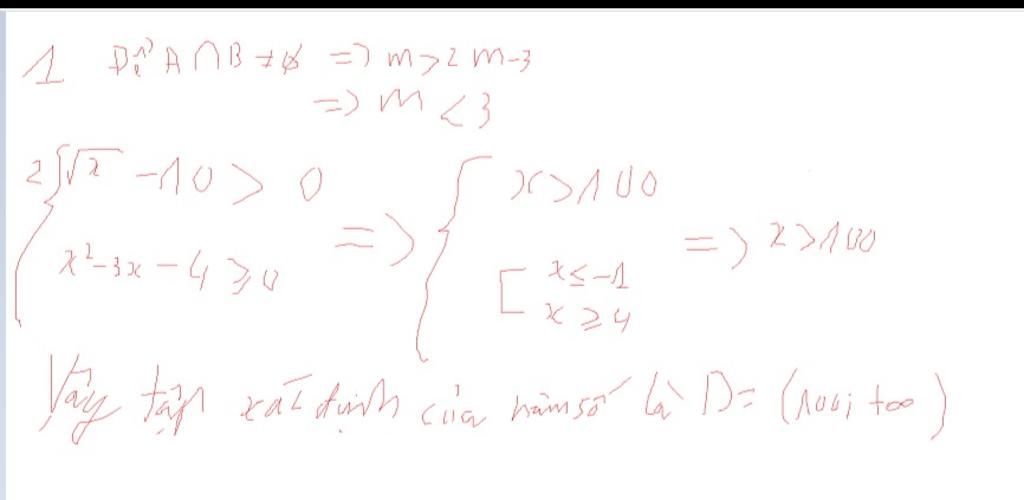 1 Để A ∩ B ≠ ∅ => m > 2m-3
=> m < 3
2 { √x - 10 > 0 => { x > 100 => x > 100
x² - 3x - 4 ≥ 0 [ x ≤ -1
x ≥ 4
Vậy tập xác định của hàm số là D = (100; +∞)